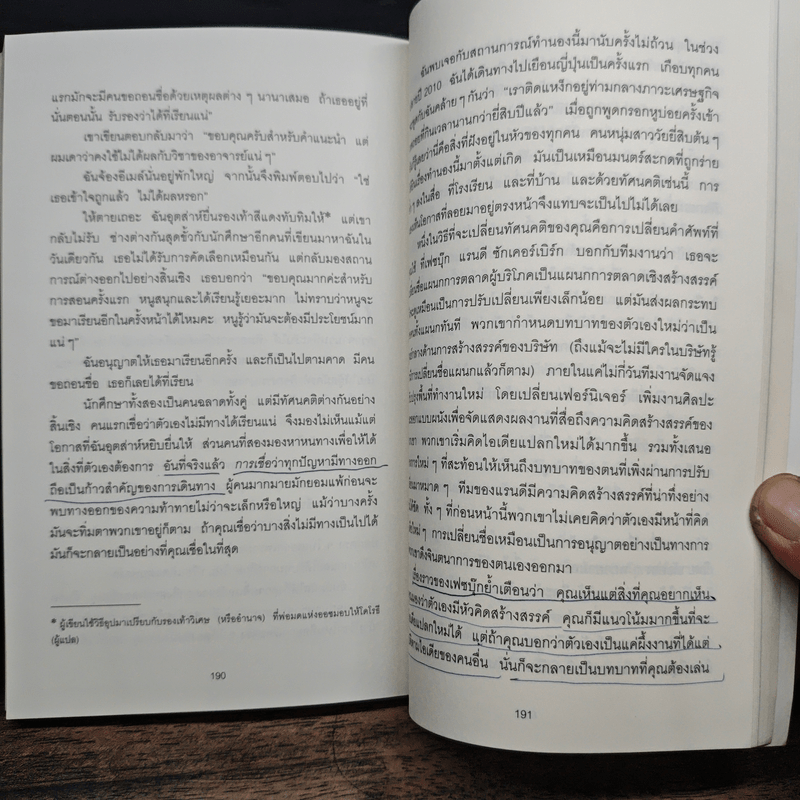 แรกมักจะมีคนขอถอนชื่อด้วยเหตุผลต่าง ๆ นานาเสมอ ถ้าเธออยู่ที่
นั่นตอนนั้น รับรองว่าได้ที่เรียนแน่"
เขาเขียนตอบกลับมาว่า "ขอบคุณครับสำหรับคำแนะนำ แต่
ผมเดาว่าคงใช้ไม่ได้ผลกับวิชาของอาจารย์แน่ ๆ"
ฉันจ้องอีเมลนั้นอยู่พักใหญ่ จากนั้นจึงพิมพ์ตอบไปว่า "ใช่
เธอเข้าใจถูกแล้ว ไม่ได้ผลหรอก"
ให้ตายเถอะ ฉันอุตส่าห์ยื่นรองเท้าสีแดงทับทิมให้* แต่เขา
กลับไม่รับ ช่างต่างกันสุดขั้วกับนักศึกษาอีกคนที่เขียนมาหาฉันใน
วันเดียวกัน เธอไม่ได้รับการคัดเลือกเหมือนกัน แต่กลับมองสถาน
การณ์ต่างออกไปอย่างสิ้นเชิง เธอบอกว่า "ขอบคุณมากค่ะสำหรับ
การสอนครั้งแรก หนูสนุกและได้เรียนรู้เยอะมาก ไม่ทราบว่าหนูจะ
ขอมาเรียนอีกในครั้งหน้าได้ไหมคะ หนูรู้ว่ามันจะต้องมีประโยชน์มาก
แน่ ๆ"
ฉันอนุญาตให้เธอมาเรียนอีกครั้ง และก็เป็นไปตามคาด มีคน
ขอถอนชื่อ เธอก็เลยได้ที่เรียน
นักศึกษาทั้งสองเป็นคนฉลาดทั้งคู่ แต่มีทัศนคติต่างกันอย่าง
สิ้นเชิง คนแรกเชื่อว่าตัวเองไม่มีทางได้เรียนแน่ จึงมองไม่เห็นแม้แต่
โอกาสที่ฉันอุตส่าห์หยิบยื่นให้ ส่วนคนที่สองมองหาหนทางเพื่อให้ได้
ในสิ่งที่ตัวเองต้องการ อันที่จริงแล้ว การเชื่อว่าทุกปัญหามีทางออก
ถือเป็นก้าวสำคัญของการเดินทาง ผู้คนมากมายมักยอมแพ้ก่อนจะ
พบทางออกของความท้าทายไม่ว่าจะเล็กหรือใหญ่ แม้ว่าบางครั้ง
มันจะทิ่มตาพวกเขาอยู่ก็ตาม ถ้าคุณเชื่อว่าบางสิ่งไม่มีทางเป็นไปได้
มันก็จะกลายเป็นอย่างที่คุณเชื่อในที่สุด
* ผู้เขียนใช้วิธีอุปมาเปรียบกับรองเท้าวิเศษ (หรืออำนาจ) ที่พ่อมดแห่งออซมอบให้โดโรธี
(ผู้แปล)
190
ฉันพบเจอกับสถานการณ์ทำนองนี้มานับครั้งไม่ถ้วน ในช่วง
ปี 2010 ฉันได้เดินทางไปเยือนญี่ปุ่นเป็นครั้งแรก เกือบทุกคน
กับฉันคล้าย ๆ กันว่า "เราติดแหง็กอยู่ท่ามกลางภาวะเศรษฐกิจ
กันเวลานานกว่ายี่สิบปีแล้ว" เมื่อถูกพูดกรอกหูบ่อยครั้งเข้า
ว่านี่คือสิ่งที่ฝังอยู่ในหัวของทุกคน คนหนุ่มสาววัยยี่สิบต้น ๆ
เรื่องทำนองนี้มาตั้งแต่เกิด มันเป็นเหมือนมนตร์สะกดที่ถูกร่าย
ๆ ลงในสื่อ ที่โรงเรียน และที่บ้าน และด้วยทัศนคติเช่นนี้ การ
โอกาสที่ลอยมาอยู่ตรงหน้าจึงแทบจะเป็นไปไม่ได้เลย
หนึ่งในวิธีที่จะเปลี่ยนทัศนคติของคุณคือการเปลี่ยนคำศัพท์ที่
ใช้ ที่เฟซบุ๊ก แรนดี ซักเคอร์เบิร์ก บอกกับทีมงานว่า เธอจะ
ชื่อแผนกการตลาดผู้บริโภคเป็นแผนกการตลาดเชิงสร้างสรรค์
เหมือนเป็นการปรับเปลี่ยนเพียงเล็กน้อย แต่มันส่งผลกระทบ
ทั้งแผนกทันที พวกเขากำหนดบทบาทของตัวเองใหม่ว่าเป็น
กลางด้านการสร้างสรรค์ของบริษัท (ถึงแม้จะไม่มีใครในบริษัทรู้
การเปลี่ยนชื่อแผนกแล้วก็ตาม) ภายในแค่ไม่กี่วันทีมงานจัดแจง
ปรุงพื้นที่ทำงานใหม่ โดยเปลี่ยนเฟอร์นิเจอร์ เพิ่มงานศิลปะ
ออกแบบผนังเพื่อจัดแสดงผลงานที่สื่อถึงความคิดสร้างสรรค์ของ
พวกเขาเริ่มคิดไอเดียแปลกใหม่ได้มากขึ้น รวมทั้งเสนอ
การใหม่ ๆ ที่สะท้อนให้เห็นถึงบทบาทของตนที่เพิ่งผ่านการปรับ
มาหมาด ๆ ทีมของแรนดีมีความคิดสร้างสรรค์ที่น่าทึ่งอย่าง
ทั้ง ๆ ที่ก่อนหน้านี้พวกเขาไม่เคยคิดว่าตัวเองมีหน้าที่คิด
ใหม่ ๆ การเปลี่ยนชื่อเหมือนเป็นการอนุญาตอย่างเป็นทางการ
เขาดึงจินตนาการของตนเองออกมา
เรื่องราวของเฟซบุ๊กย้ำเตือนว่า คุณเห็นแต่สิ่งที่คุณอยากเห็น
มองว่าตัวเองมีหัวคิดสร้างสรรค์ คุณก็มีแนวโน้มมากขึ้นที่จะ
แปลกใหม่ได้ แต่ถ้าคุณบอกว่าตัวเองเป็นแค่ผึ้งงานที่ได้แต่
ตามไอเดียของคนอื่น นั่นก็จะกลายเป็นบทบาทที่คุณต้องเล่น
191